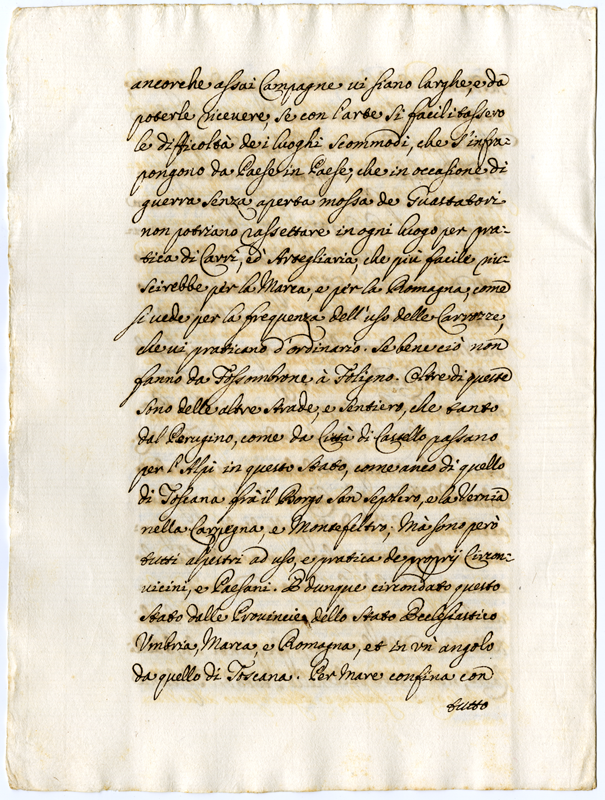 ancorche assai Campagne vi siano larghe, e da
poterle ricevere, se con l'arte si facilitassero
le difficoltà de i luoghi scommodi, che s'infra-
pongono da Paese in Paese, che in occasione di
guerra senza aperta mossa de Guastatori
non potriano rassettare in ogni luogo per pra-
tica di Carri, ed Artegliaria, che piu facile riu-
scirebbe per la Marca, e per la Romagna, come
si vede per la frequenza dell'uso delle Carrozze,
che vi praticano d'ordinario. Se bene ciò non
fanno da Fossombrone à Foligno. Oltre di queste
sono delle altre strade, e sentiero, che tanto
dal Perugino, come da Città di Castello passano
per l'Alpi in questo Stato, come anco di quello
di Toscana frà il Borgo San Sepolcro, e la Vernia
nella Carpegna, e Montefeltro; Mà sono però
tutti alpestri ad uso, e pratica de proprij Circon-
vicini, e Paesani. E' dunque circondato questo
Stato dalle Provincie dello Stato Ecclesiastico
Umbria, Marca, e Romagna, et in un' angolo
da quello di Toscana. Per Mare confina con
tutto